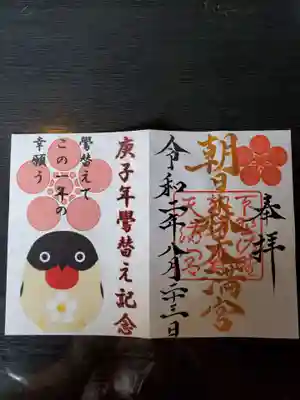 奉拝
朝日鷽替天満宮
令和二年八月二十三日
庚子年鷽替え記念
鷽替えて
この一年の
幸願う